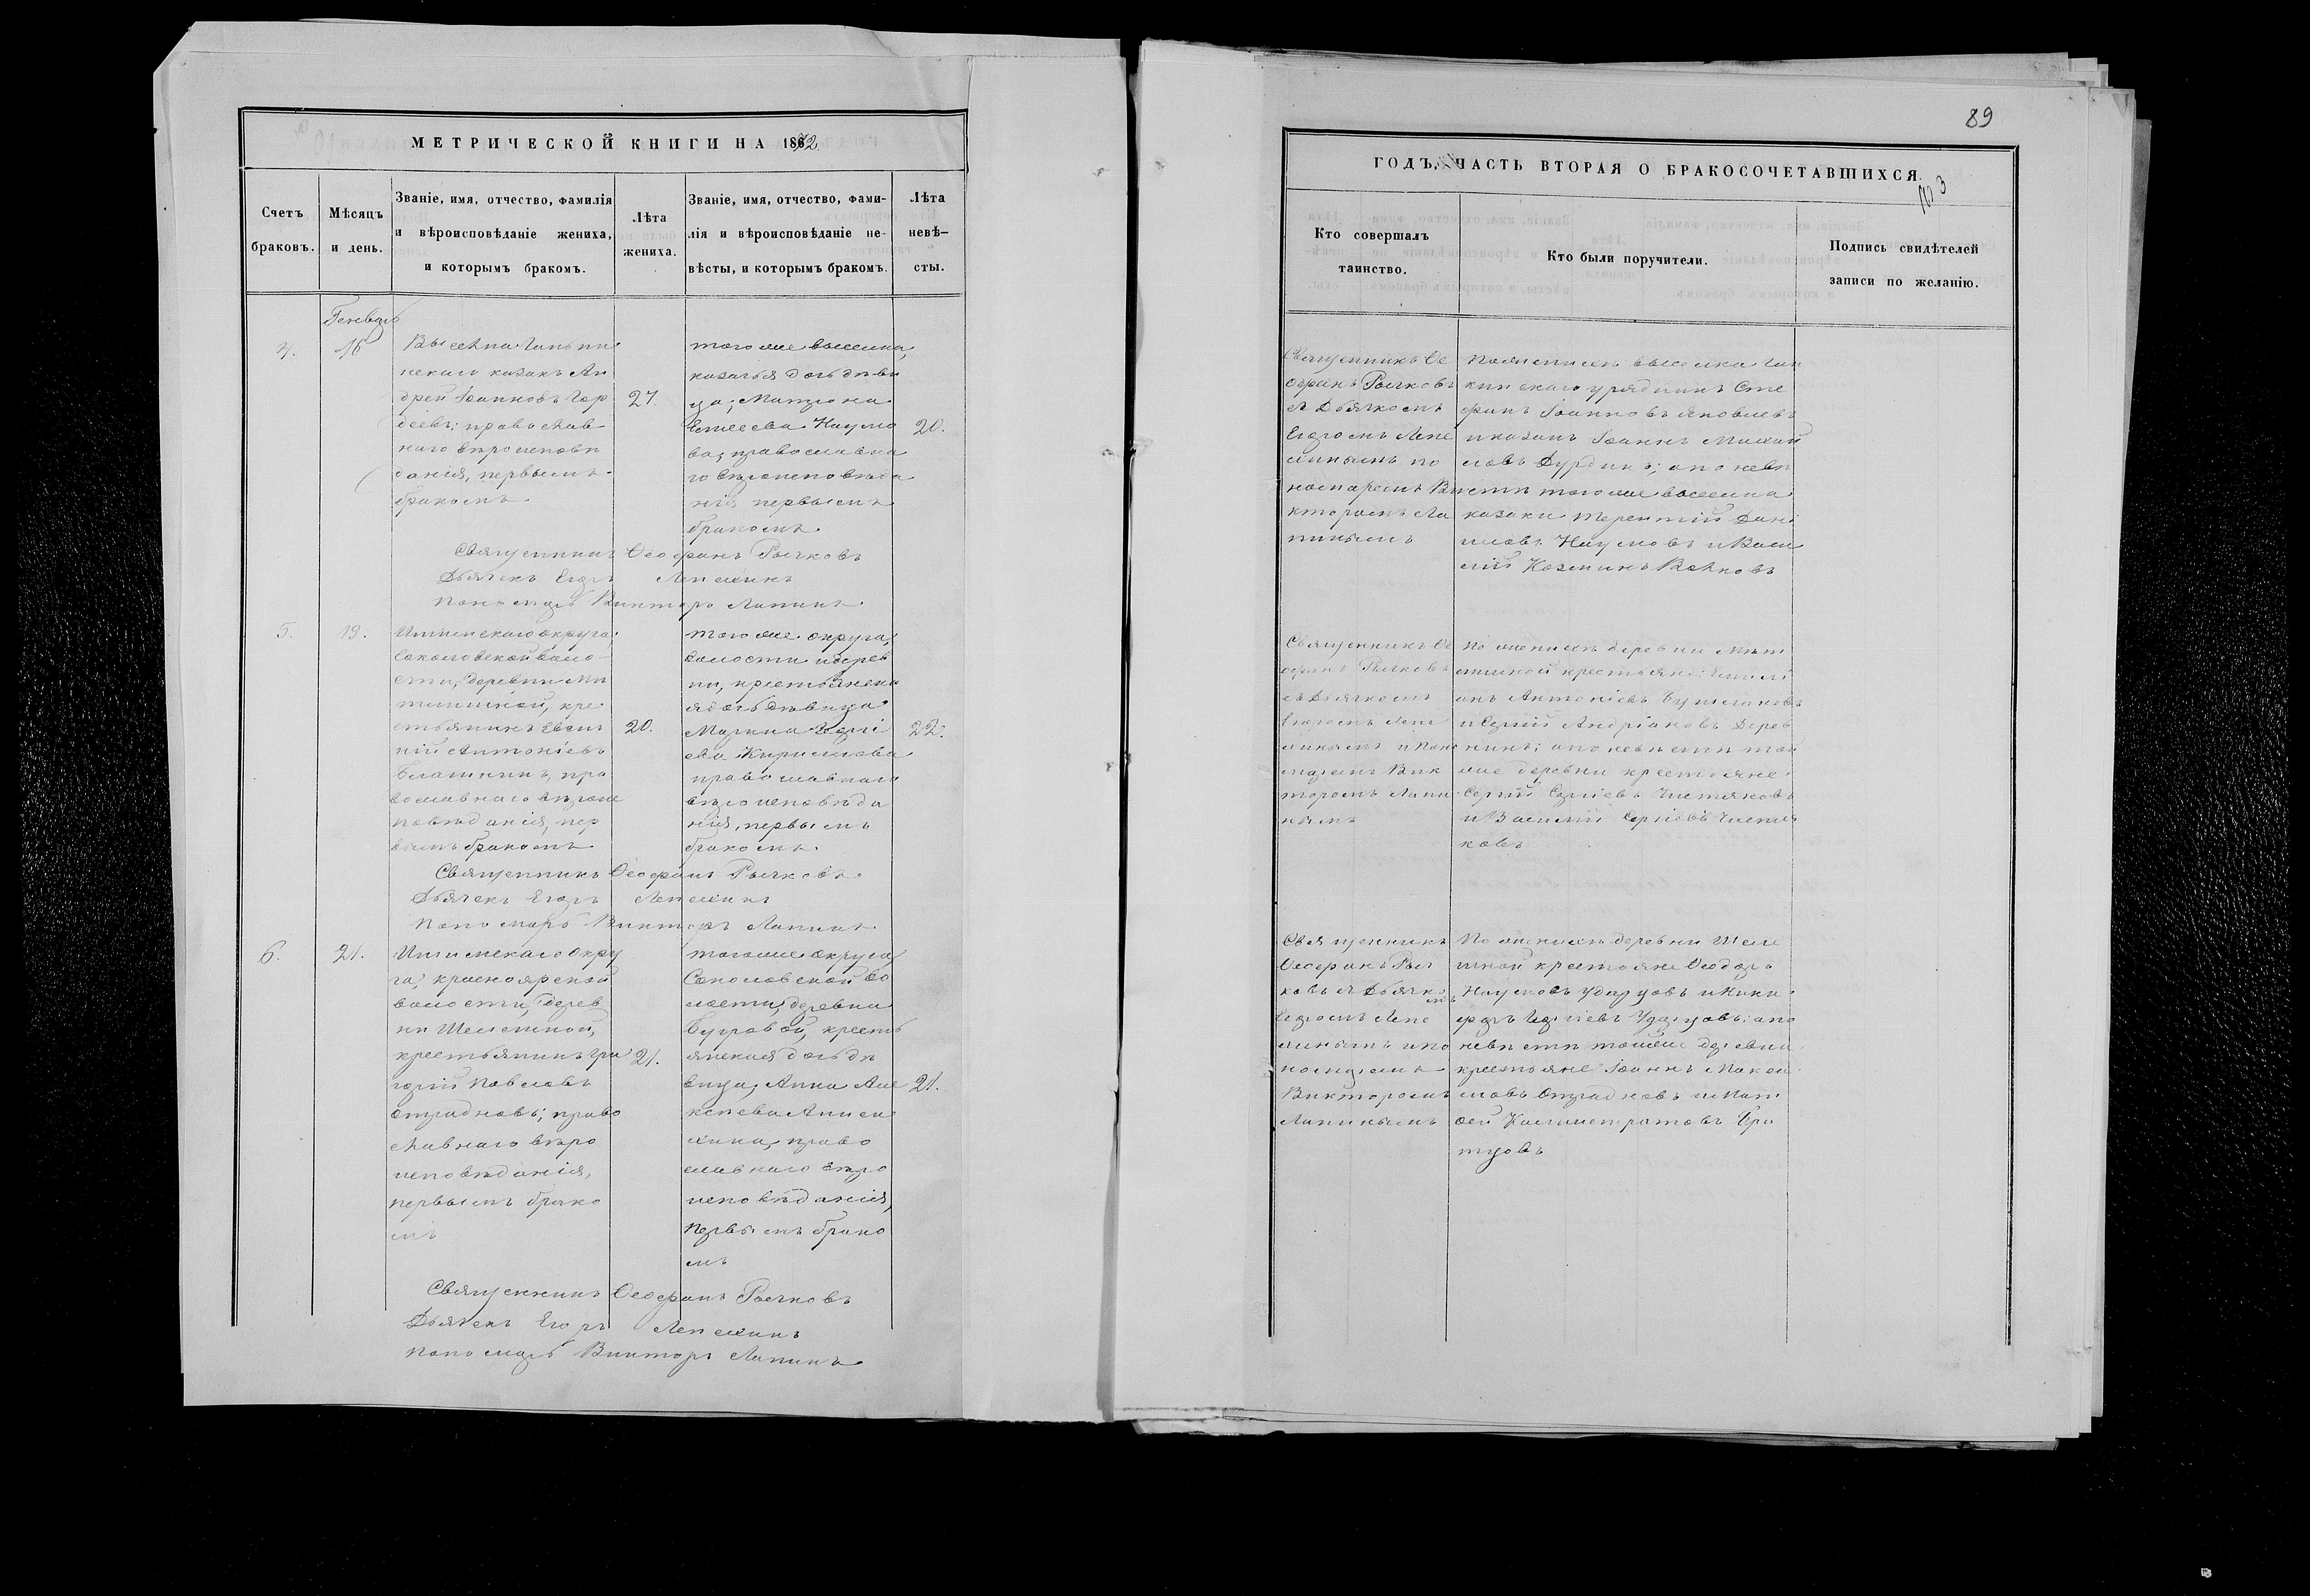 МЕТРИЧЕСКОЙ КНИГИ НА 1872.
Счетъ браковъ.
Мѣсяцъ и день.
Званіе, имя, отчество, фамилія
и вѣроисповѣданіе жениха,
и которымъ бракомъ.
Лѣта
жениха.
Званіе, имя, отчество, фами-
лія и вѣроисповѣданіе не-
вѣсты, и которымъ бракомъ.
Лѣта
невѣ-
сты.
Генварь
4.
16
казакъ Ан
дрей Іоанновъ Гор
дѣевъ; православ
наго вѣроисповѣ
данія, первымъ
бракомъ
27.
того же выселка,
казачья дочь дѣви
ца,
Наумо
ва, православна
го вѣроисповѣда
нія первымъ
бракомъ.
20.
Священникъ Ѳеофанъ Рычковъ
Дьячекъ Егоръ Лепехинъ
Пономарь Викторъ Лапинъ
5.
19.
Ишимскаго округа,
Соколовской воло
сти, деревни
кре
стьянинъ Евген
ній Антоніевъ
пра
вославнаго вѣроис
повѣданія, пер
вымъ бракомъ
20.
того же округа,
волости и дерев
ни, крестьянска
я дочь дѣвица
Марина Сергі
ева Кирилова
православнаго
вѣроисповѣда
нія, первымъ
бракомъ.
22.
Священникъ Ѳеофанъ Рычковъ
Дьячекъ Егоръ Лепехинъ
Пономарь Викторъ Лапинъ
6.
21.
Ишимскаго окру
га, красноярской
волости, дерев
ни
крестьянинъ Гри
горій Павловъ
Отрадновъ; право
славнаго вѣро
исповѣданія,
первымъ брако
мъ
21.
того же округа
Соколовской во
лости, деревни
Бугровой, кресть
янская дочь дѣ
вица, Анна Але
ксѣева
право
славнаго вѣро
исповѣданія,
первымъ брако
мъ
21.
Священникъ Ѳеофанъ Рычковъ
Дьячекъ Егоръ Лепехинъ
Пономарь Викторъ Лапинъ
89
ГОДЪ, ЧАСТЬ ВТОРАЯ О БРАКОСОЧЕТАВШИХСЯ.
№ 3
Кто совершалъ
таинство.
Кто были поручители.
Подпись свидѣтелей
записи по желанію.
Священникъ Ѳе
офанъ Рычковъ
съ Дьячкомъ
Егоромъ Лепе
хинымъ по
номаремъ Ви
кторомъ Ла
пинымъ
По женихѣ выселка
урядникъ Сте
фанъ Іоанновъ Яковлевъ
и казакъ Іоаннъ Михай
ловъ Дурдинъ; а по невѣ
стѣ того же выселка
казаки Терентій Дані
иловъ Наумовъ и Васи
лій Козминъ Волковъ
Священникъ Ѳе
офанъ Рычковъ
съ Дьячкомъ
Егоромъ Лепе
хинымъ и поно
маремъ Вик
торомъ Лапи
нымъ
По женихѣ деревни
крестьяне: Емелі
анъ Антоніевъ
и Сергій Андріановъ Дерев
нинъ; а по невѣстѣ той
же деревни крестьяне
Сергій Сергіевъ Чистяковъ
и Василій Сергіевъ Чистя
ковъ
Священникъ
Ѳеофанъ Рыч
ковъ съ Дьячко
мъ
Егоромъ Лепе
хинымъ и по
номаремъ
Викторомъ
Лапинымъ
По женихѣ деревни
крестьяне Ѳеодоръ
Наумовъ Ударцовъ и Ники
форъ Ударцовъ; а по
невѣстѣ той же деревни
крестьяне Іоаннъ
Отрадновъ и Мат
ѳей Каллистратовъ